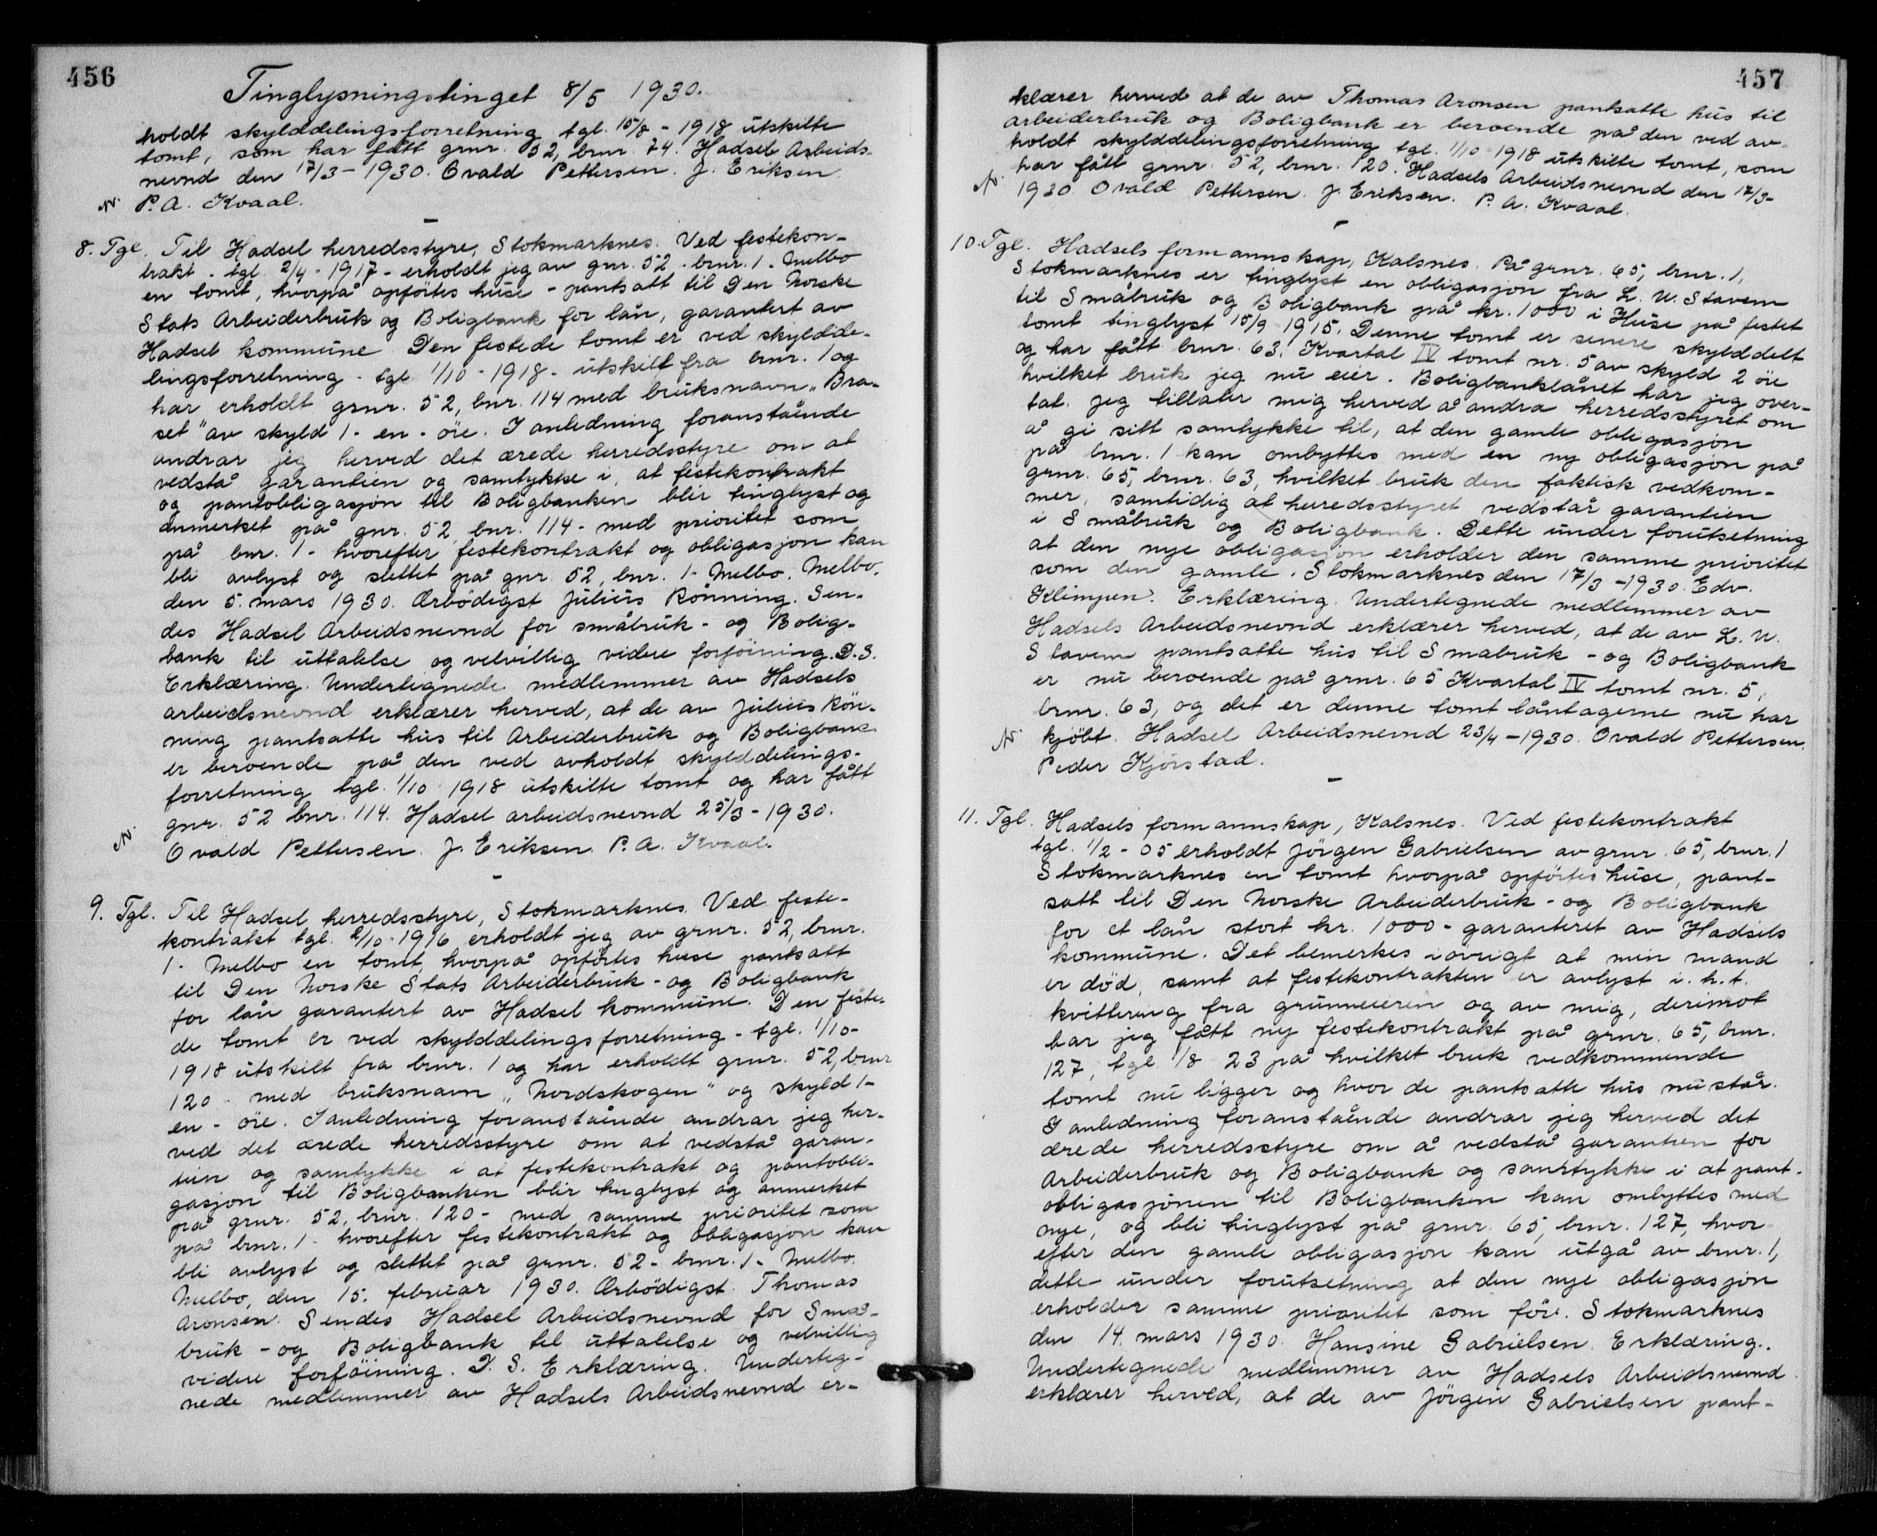 456
Tinglysningstinget 8/5 1930.
holdt skylddelingsforretning tgl. 15/8 - 1918 utskilte
tomt, som har fått grnr. 52, brnr. 74. Hadsel Arbeids-
nevnd den 17/3 - 1930. Ovald Pettersen. J. Eriksen.
N. P. A. Kvaal.
8. Tgl. Til Hadsel herredsstyre, Stokmarknes. Ved festekon-
trakt - tgl. 2/4 - 1917 - erholdt jeg av gnr. 52 - brnr. 1 - Melbo
en tomt, hvorpå opførtes huse - pantsatt til Den Norske
Stats Arbeiderbruk og Boligbank for lån, garantert av
Hadsel kommune. Den festede tomt er ved skyldde-
lingsforretning - tgl. 1/10 - 1918 - utskilt fra bnr. 1 og
har erholdt grnr. 52, bnr. 114 med bruksnavn „Bra-
set" av skyld 1 - en - öre. I anledning foranstående
andrar jeg herved det ærede herredsstyre om at
vedstå garantien og samtykke i, at festekontrakt
og pantobligasjon til Boligbanken blir tinglyst og
anmerket på gnr. 52, bnr. 114 - med prioritet som
på bnr. 1 - hvorefter festekontrakt og obligasjon kan
bli avlyst og slettet på gnr. 52, bnr. 1 - Melbo. Melbo,
den 5. mars 1930. Ærbödigst Julius Rönning. Sen-
des Hadsel Arbeidsnevnd for småbruk - og Bolig-
bank til uttalelse og velvillig videre forföining. D.S.
Erklæring. Undertegnede medlemmer av Hadsels
arbeidsnevnd erklærer herved, at de av Julius Rön-
ning pantsatte hus til Arbeiderbruk og Boligbank
er beroende på den ved avholdt skylddelings-
forretning tgl. 1/10 1918 utskilte tomt og har fått
gnr. 52 bnr. 114. Hadsel arbeidsnevnd 25/3 - 1930.
N. Ovald Pettersen. J. Eriksen. P. A. Kvaal.
9. Tgl. Til Hadsel herredsstyre, Stokmarknes. Ved feste-
kontrakt tgl. 2/10 - 1916 erholdt jeg av grnr. 52, brnr.
1 - Melbo en tomt hvorpå opførtes huse pantsatt
til Den Norske Stats Arbeiderbruk - og Boligbank
for lån garantert av Hadsel kommune. Den feste-
de tomt er ved skylddelingsforretning - tgl. 1/10 -
1918 utskilt fra brnr. 1 og har erholdt grnr. 52, brnr
120 - med bruksnavn „Nordskogen" og skyld 1 -
en - öre. I anledning foranstående andrar jeg her-
ved det ærede herredsstyre om at vedstå garan-
tien og samtykke i at festekontrakt og pantobli-
gasjon til Boligbanken blir tinglyst og anmerket
på grnr. 52, brnr. 120 - med samme prioritet som
på brnr. 1 - hvorefter festekontrakt og obligasjon kan
bli avlyst og slettet på grnr. 52 - brnr. 1 - Melbo.
Melbo, den 15. februar 1930. Ærbödigst. Thomas
Aronsen. Sendes Hadsel Arbeidsnevnd for Små-
bruk - og Boligbank til uttalelse og velvillig
videre forföining. D. S. Erklæring. Underteg-
nede medlemmer av Hadsels Arbeidsnevnd er-
457
klærer herved at de av Thomas Aronsen pantsatte hus til
Arbeiderbruk og Boligbank er beroende på den ved av-
holdt skylddelingsforretning tgl. 1/10 1918 utskilte tomt, som
har fått grnr. 52, brnr. 120. Hadsels Arbeidsnevnd den 17/3 -
N. 1930. Ovald Pettersen. J. Eriksen. P. A. Kvaal.
10. Tgl. Hadsels formannskap, Kalsnes. På grnr. 65, brnr. 1,
Stokmarknes er tinglyst en obligasjon fra L. U. Stavem
til Småbruk og Boligbank på kr. 1000 i Huse på festet
tomt tinglyst 15/9 1915. Denne tomt er senere skylddelt
og har fått brnr. 63. Kvartal IV tomt nr. 5 av skyld 2 öre
hvilket bruk jeg nu eier. Boligbanklånet har jeg over-
tat. Jeg tillater mig herved å andra herredsstyret om
å gi sitt samtykke til, at den gamle obligasjon
på brnr. 1 kan ombyttes med en ny obligasjon på
grnr. 65, brnr. 63, hvilket bruk den faktisk vedkom-
mer, samtidig at herredsstyret vedstår garantien
i Småbruk og Boligbank. Dette under forutsetning
at den nye obligasjon erholder den samme prioritet
som den gamle. Stokmarknes den 17/3 - 1930. Edv.
Klimpen. Erklæring. Undertegnede medlemmer av
Hadsels Arbeidsnevnd erklærer herved, at de av L. U.
Stavem pantsatte hus til Småbruk - og Boligbank
er nu beroende på grnr. 65 Kvartal IV tomt nr. 5,
brnr. 63, og det er denne tomt låntagerne nu har
N. kjöbt. Hadsel Arbeidsnevnd 23/4 - 1930. Ovald Pettersen.
Peder Kjörstad.
11. Tgl. Hadsels formannskap, Kalsnes. Ved festekontrakt
tgl. 1/2 - 05 erholdt Jörgen Gabrielsen av grnr. 65, brnr. 1
Stokmarknes en tomt hvorpå opförtes huse, pant-
satt til Den Norske Arbeiderbruk - og Boligbank
for et lån stort kr. 1000 - garanteret av Hadsels
kommune. Det bemerkes iövrigt at min mand
er död, samt at festekontrakten er avlyst i. h. t.
kvittering fra grunneieren og av mig, derimot
har jeg fått ny festekontrakt på grnr. 65, brnr.
127, tgl 1/8 23 på hvilket bruk vedkommende
tomt nu ligger og hvor de pantsatte hus nu står.
I anledning foranstående andrar jeg herved det
ærede herredsstyre om å vedstå garantien for
Arbeiderbruk og Boligbank og samtykke i at pant-
obligasjonen til Boligbanken kan ombyttes med
nye, og bli tinglyst på grnr. 65, brnr. 127, hvor-
efter den gamle obligasjon kan utgå av brnr. 1,
dette under forutsetning at den nye obligasjon
erholder samme prioritet som för. Stokmarknes
den 14 mars 1930. Hansine Gabrielsen. Erklæring.
Undertegnede medlemmer av Hadsels Arbeidsnevnd
erklærer herved, at de av Jörgen Gabrielsen pant-